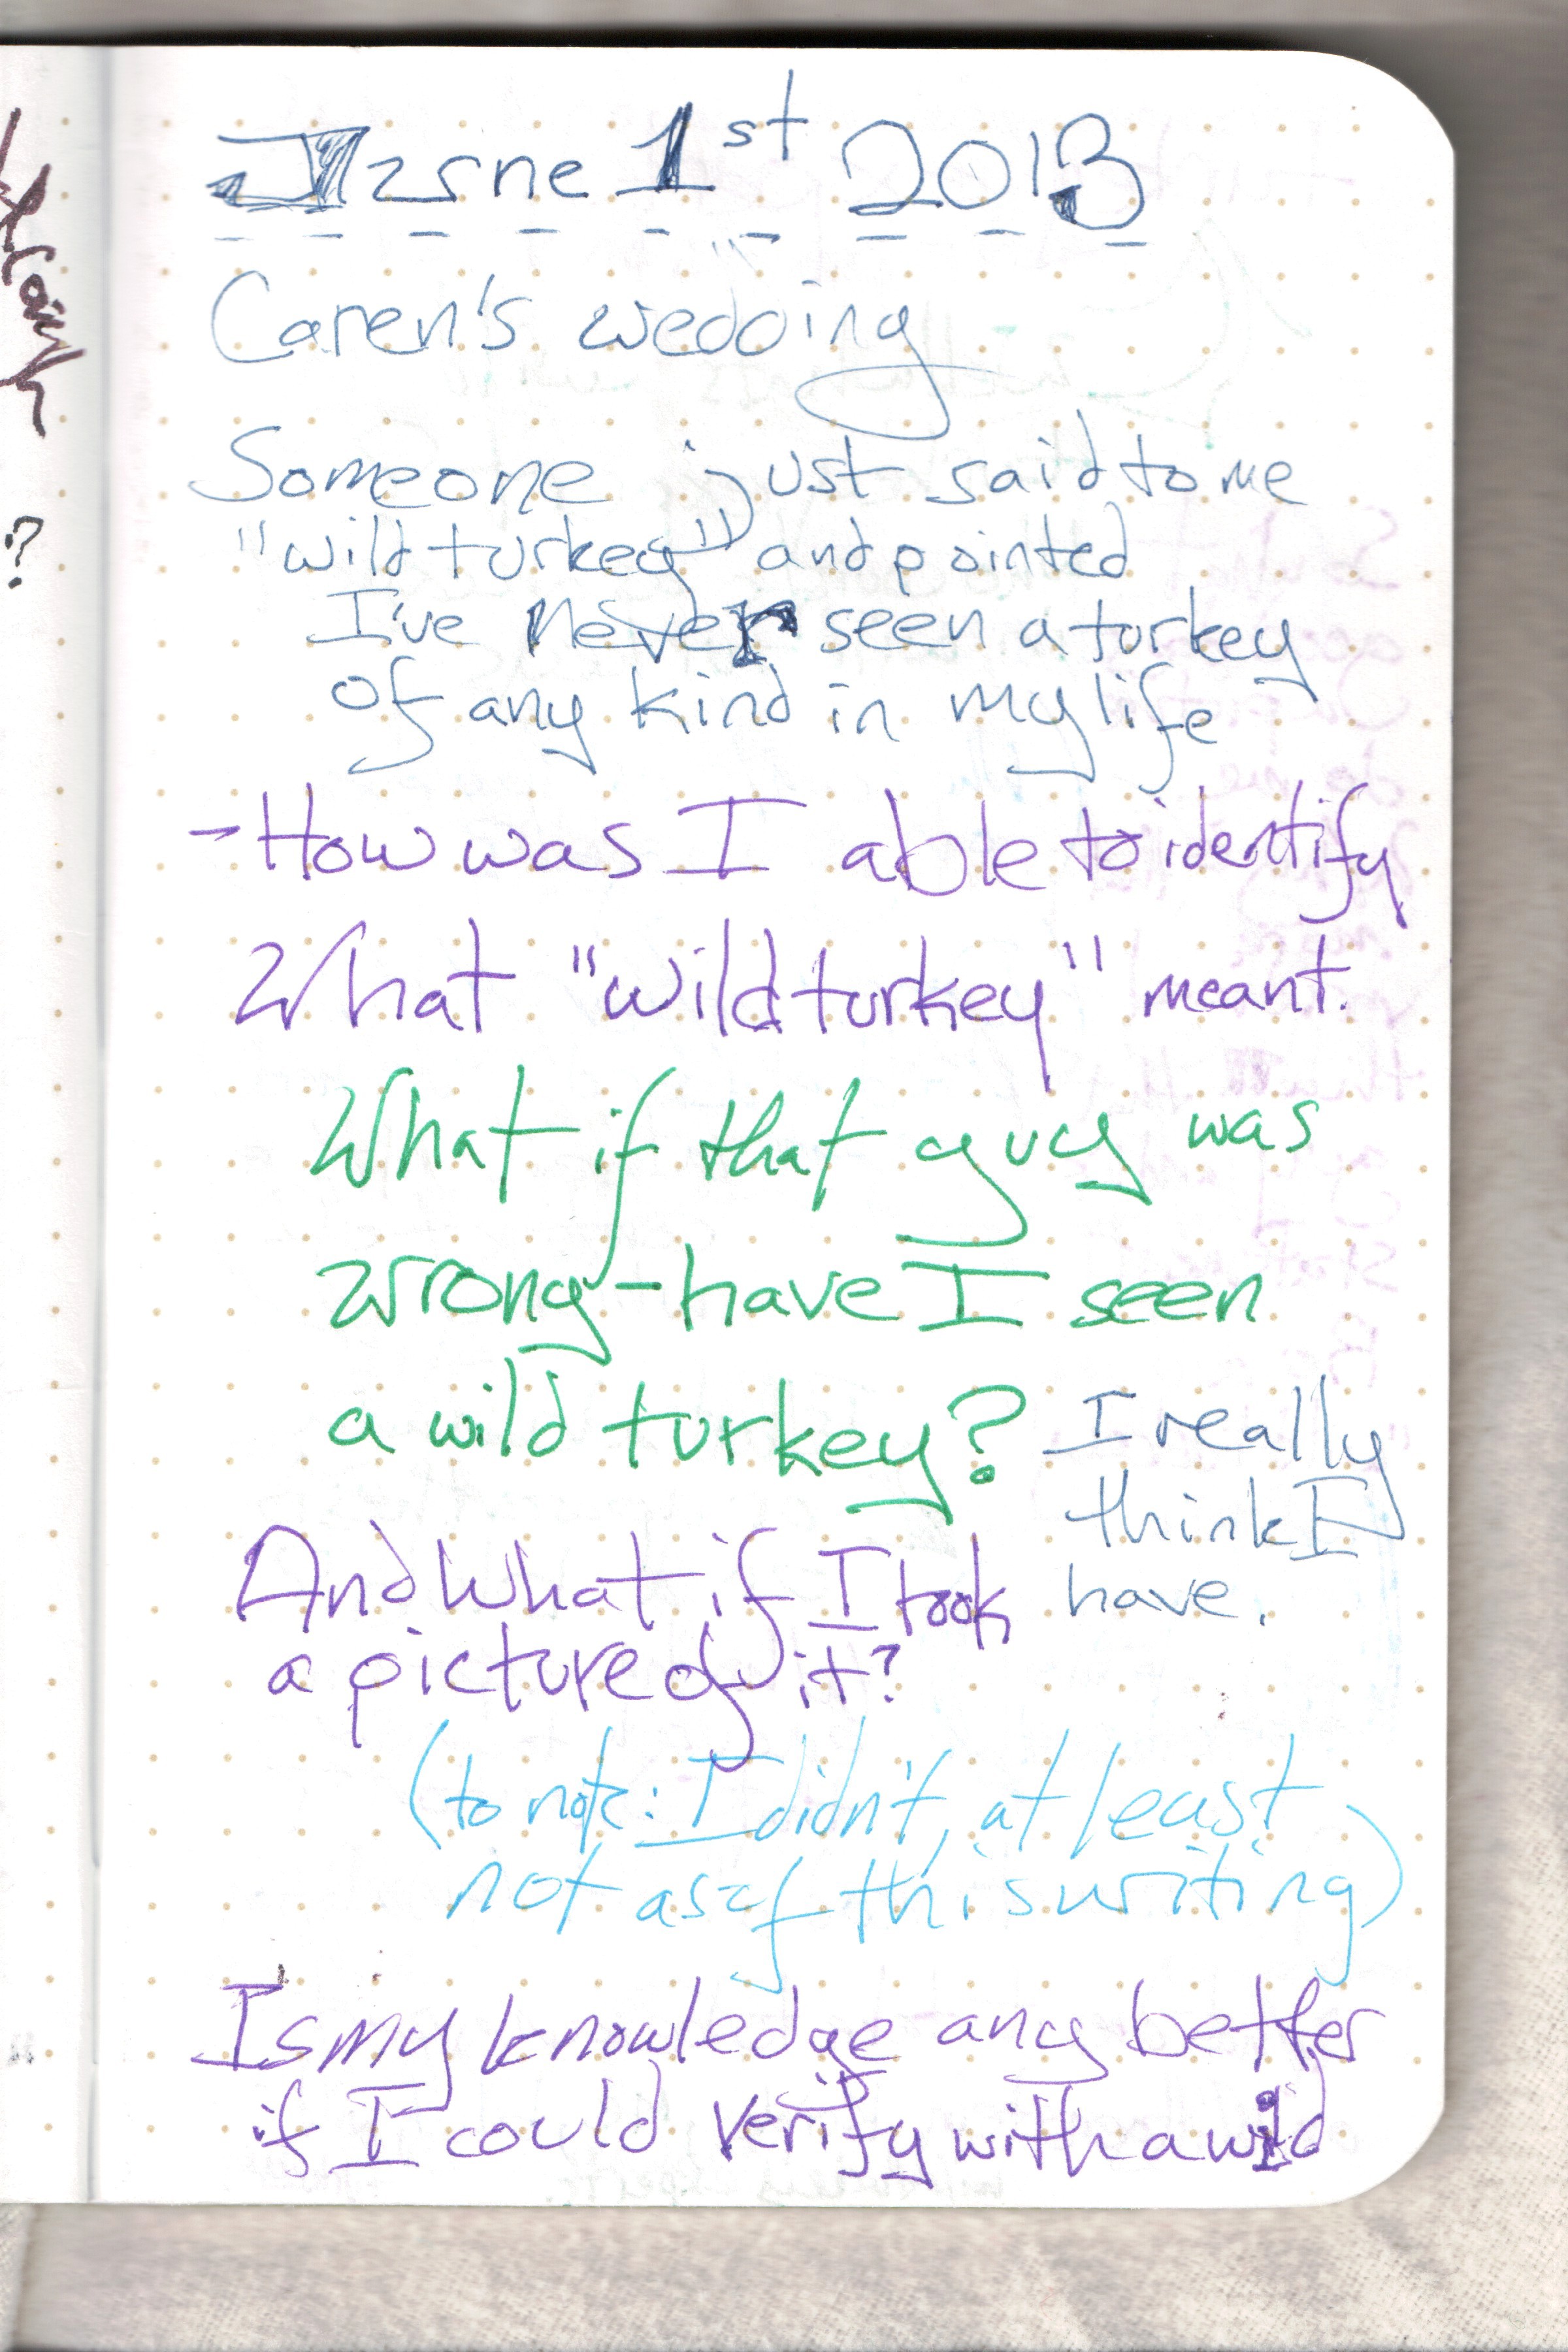 June 1st 2013
Caren's wedding
Someone just said to me
"wild turkey" and pointed
I've never seen a turkey
of any kind in my life
- How was I able to identify
What "wild turkey" meant.
What if that guy was
wrong - have I seen
a wild turkey? I really
think I
have.
And what if I took
a picture of it?
(to note: I didn't, at least
not as of this writing)
Is my knowledge any better
if I could verify with a wild
?